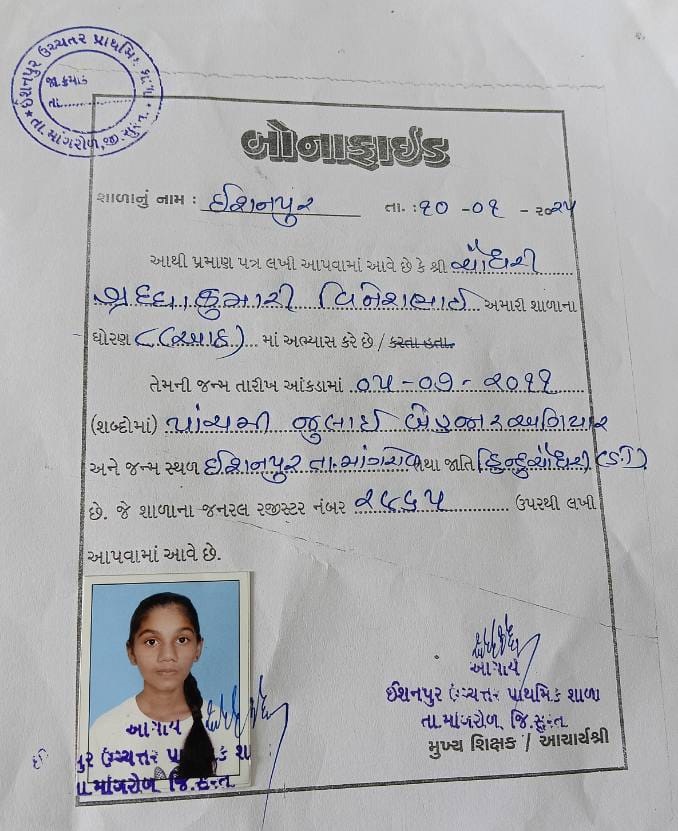 ઈશનપુર ઉચ્ચત્તર પ્રાથમિક શાળા
જા.ક્રમાંક
તા.
તા.માંગરોળ,જી.સુરત.
બોનાફાઈડ
શાળાનું નામ : ઈશિનપુર તા. : ૧૦ -૦૧ - ૨૦૨૫
આથી પ્રમાણ પત્ર લખી આપવામાં આવે છે કે શ્રી ચૌધરી
શ્રધ્ધાકુમારી વિનેશભાઈ અમારી શાળાના
ધોરણ ૮(આઠ) માં અભ્યાસ કરે છે / કરતા હતા.
તેમની જન્મ તારીખ આંકડામાં ૦૫-૦૭-૨૦૧૧
(શબ્દોમાં) પાંચમી જુલાઈ બેહજાર અગિયાર
અને જન્મ સ્થળ ઈશિનપુર તા.માંગરોળ તથા જાતિ હિન્દુચૌધરી (S.T)
છે. જે શાળાના જનરલ રજીસ્ટર નંબર ઉપરથી લખી
આપવામાં આવે છે.
આચાર્ય
ઈશનપુર ઉચ્ચત્તર પ્રાથમિક શાળા
તા.માંગરોળ જિ.સુરત.
મુખ્ય શિક્ષક / આચાર્યશ્રી
આચાર્ય
પુર ઉચ્ચત્તર પ્રાથમિક શા
તા.માંગરોળ જિ.સુરત.